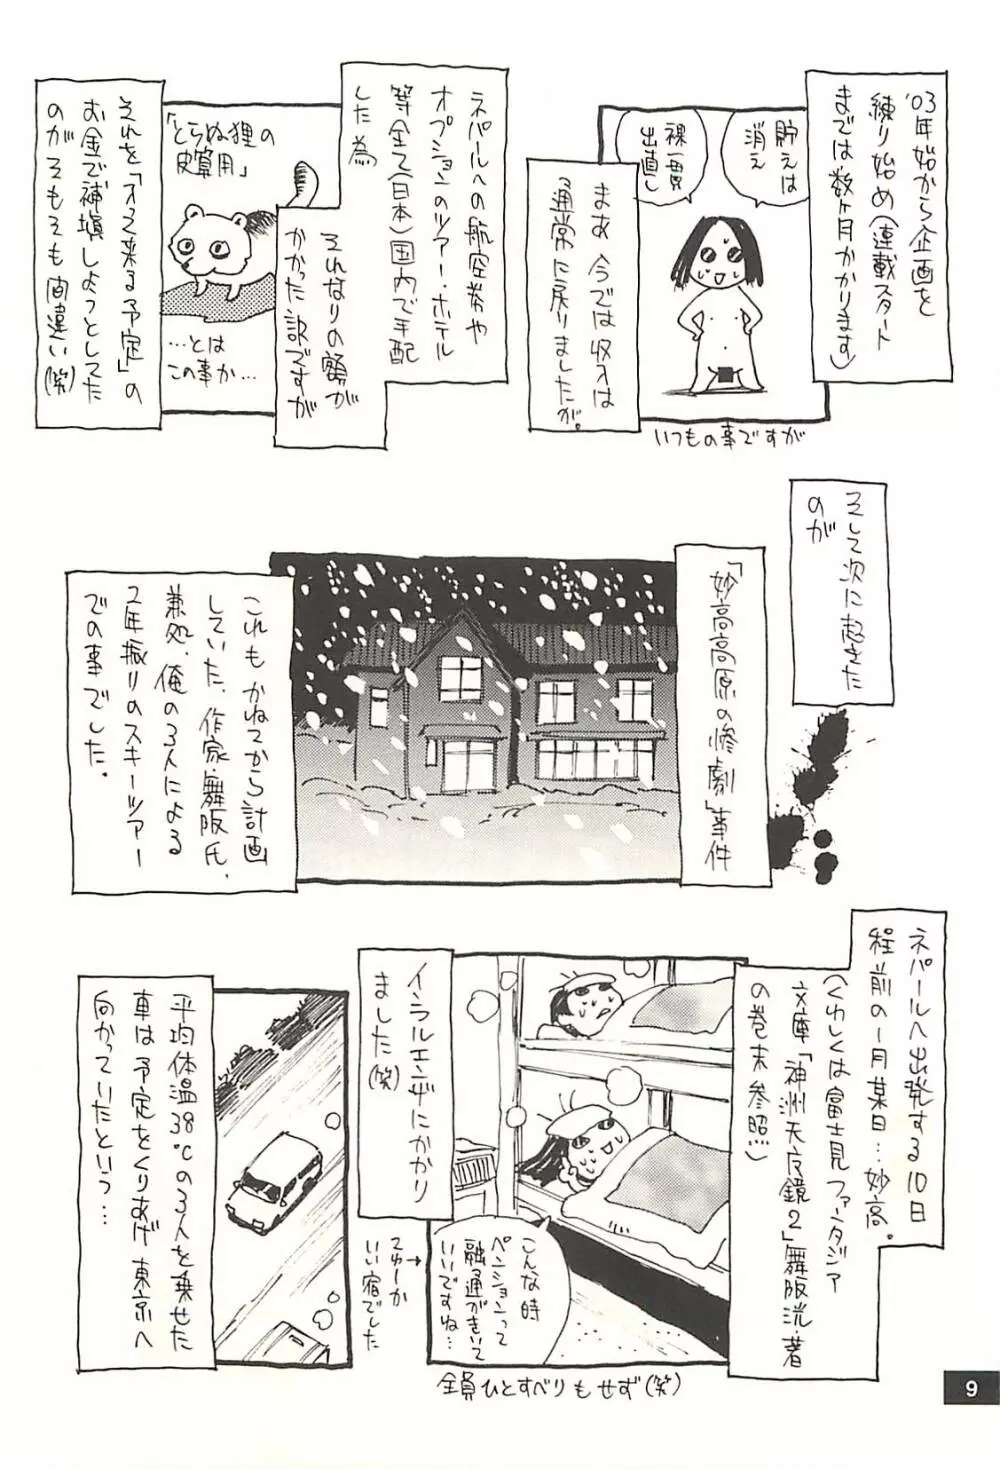 '03年始から企画を
練り始め(連載スタート
までは数ヶ月かかります)
貯えは
消え
裸一貫
出直し
まあ今では収入は
通常に戻りましたが。
いつもの事ですが
ネパールへの航空券や
オプションのツアー・ホテル
等全て(日本)国内で手配
した為
それなりの額が
かかった訳ですが
「とらぬ狸の
皮算用」
…とは
この事か…
それを「オフ来る予定」の
お金で補填しようとしてた
のがそもそも間違い(笑)
そして次に起きた
のが
「妙高高原の惨劇」事件
これもかねてから計画
していた、作家・舞阪氏、
兼処、俺の3人による
2年振りのスキーツアー
での事でした。
ネパールへ出発する10日
程前の1月某日…妙高。
(くわしくは富士見ファンタジア
文庫「神洲天守鏡2」舞阪洸・著
の巻末参照!!)
インフルエンザにかかり
ました(笑)
こんな時
ペンションって
融通がきいて
いいですね…
てゆーか
いい宿でした
全員ひとすべりもせず(笑)
平均体温38℃の3人を乗せた
車は予定をくりあげ東京へ
向かっていたという…
9